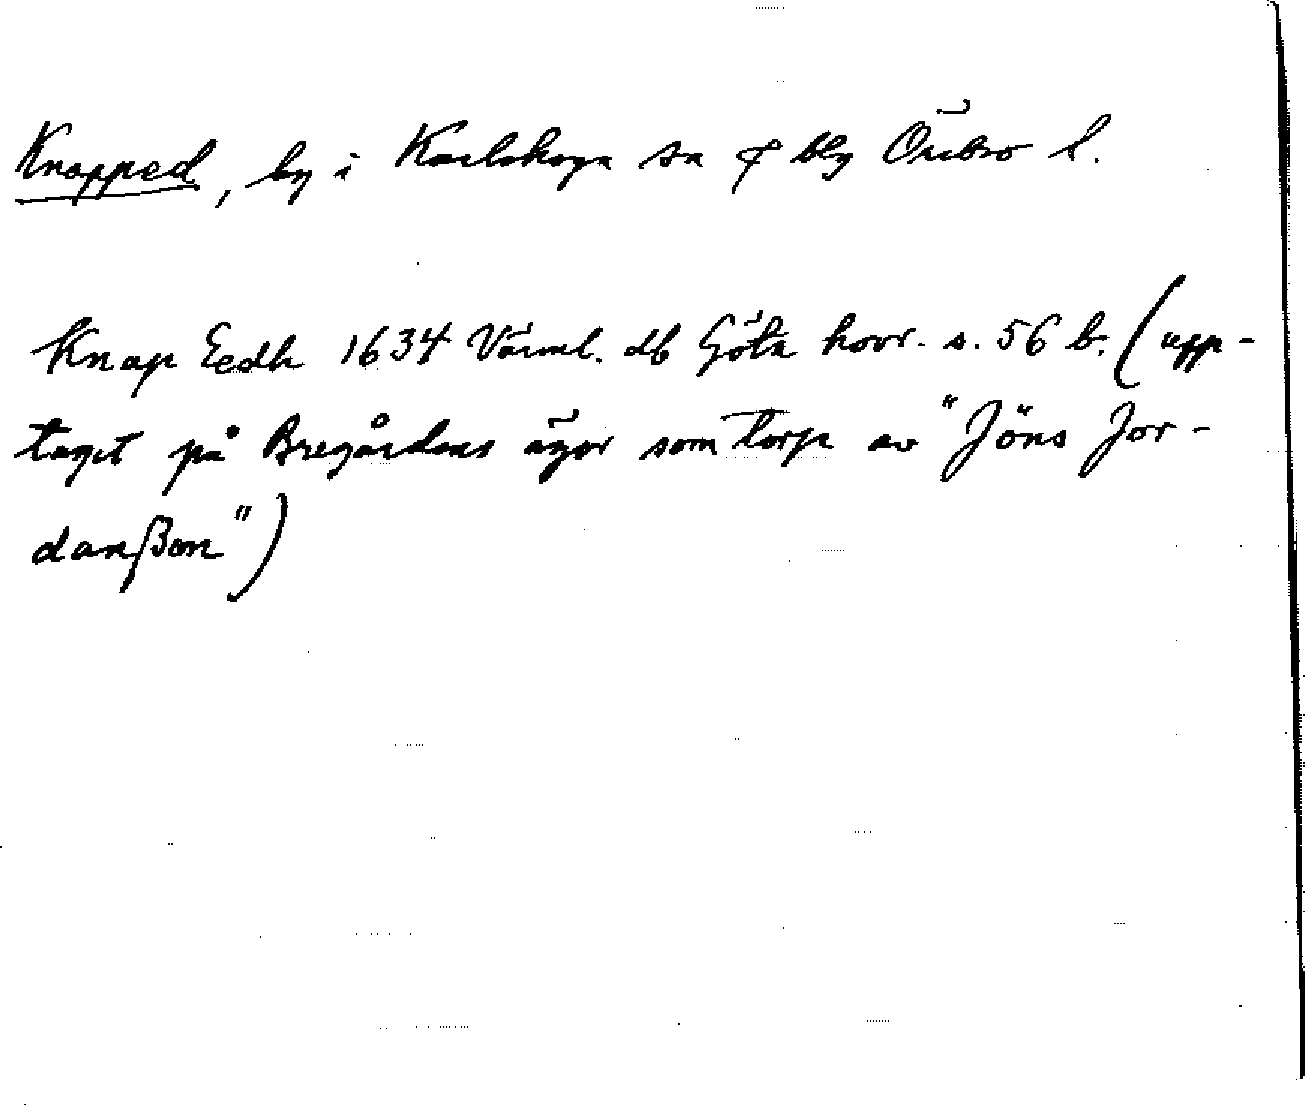 Knapped, by i Karlskoga sn o bg Örebro l.
Knap Eedh 1634 Värml. db Göta hovr. s. 56 b. (upp-
taget på Bregårdens ägor som torp av "Jöns Jor-
danßon")